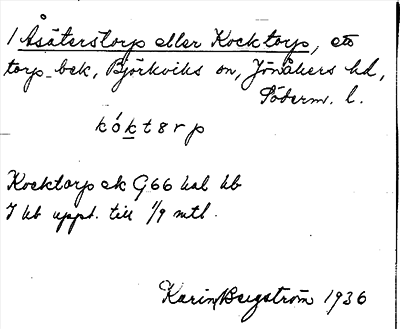 1 Åsäterstorp eller Kocktorp, ett
torp-bek, Björkviks sn, Jönåkers hd,
Söderm. l.
kóktərp
Kocktorp ek G66 hal hb
J hb uppt. till 1/9 mtl.
Karin Bergström 1936